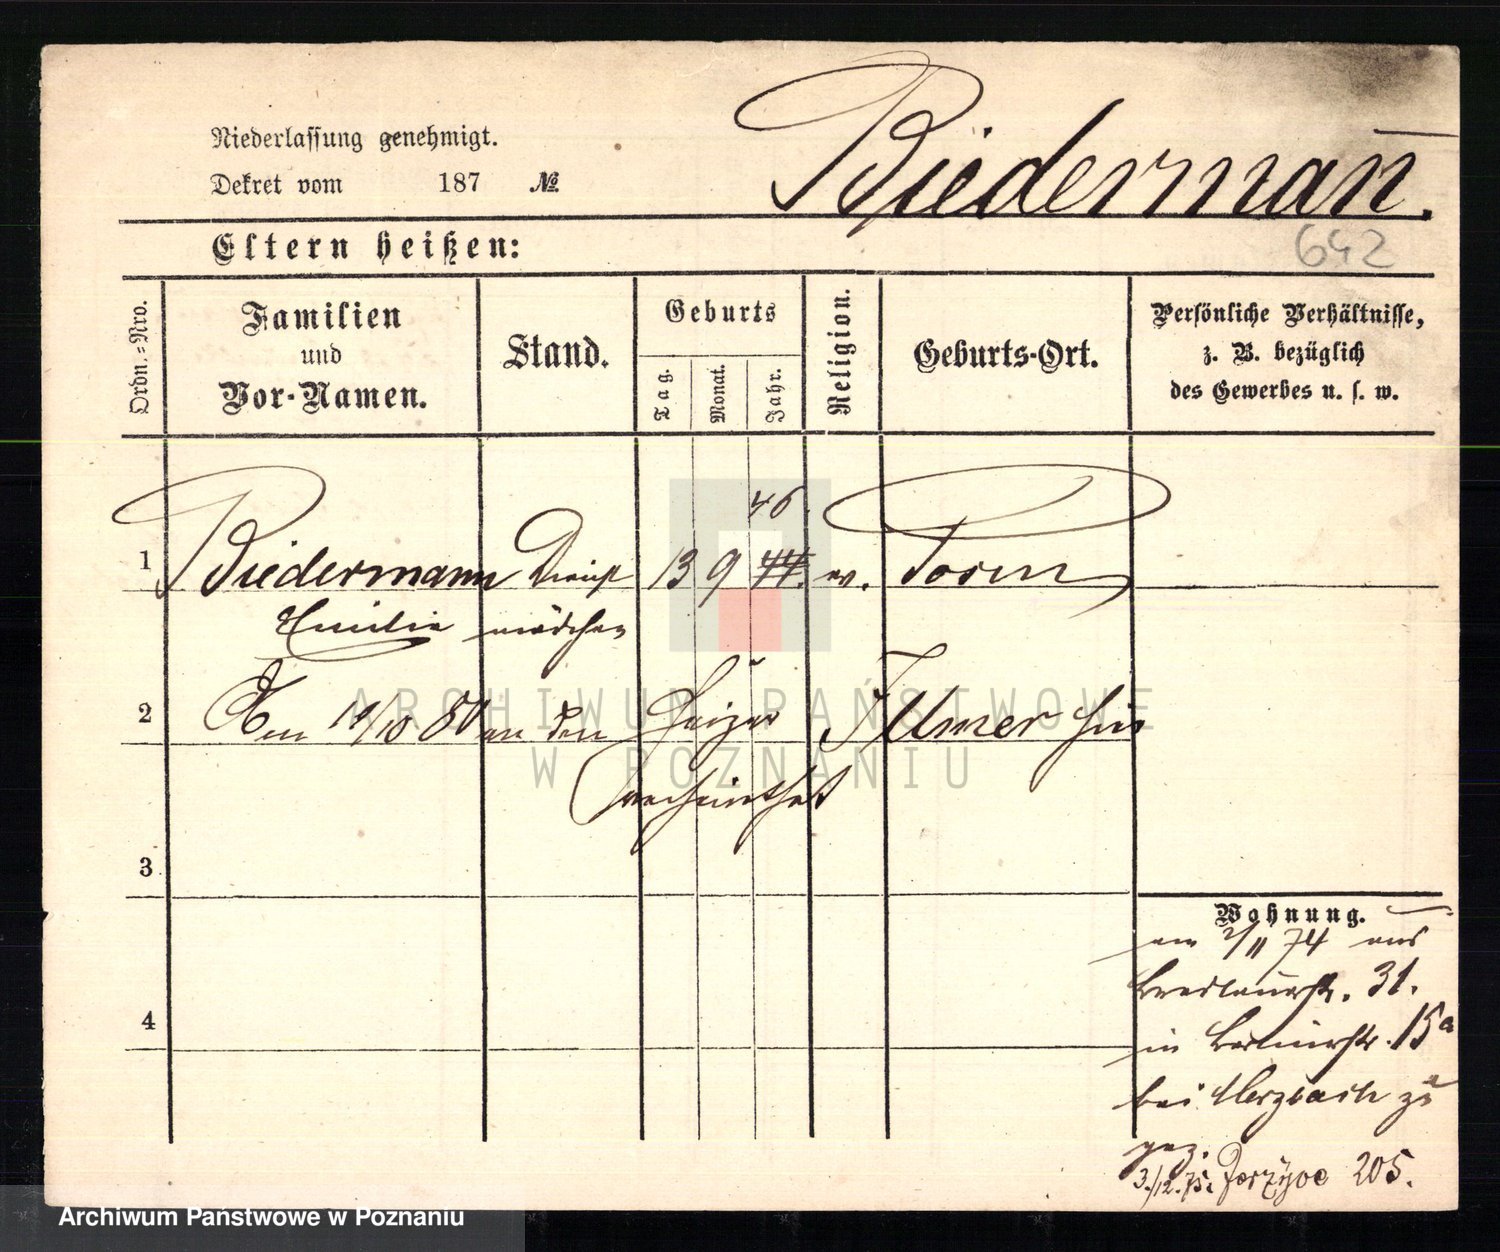 Niederlassung genehmigt.
Dekret vom 187 №
Biederman̄.
642
Eltern heißen:
Ordn.=Nro.
Familien
und
Vor-Namen.
Stand.
Geburts
Tag.
Monat.
Jahr.
Religion.
Geburts-Ort.
Persönliche Verhältnisse,
z. B. bezüglich
des Gewerbes u. s. w.
46.
1 Biedermann Dienst 13 9 44. ev. Posen
Emilie mädchen
2 Am 19/10 80 an den Heizer
verheirathet
3
Wohnung.
am 2/11 74 aus
Breslauerstr. 31.
4
in Berlinerstr. 15a
bei Herzbach zu
gez.
3./12.75. Jerzyce 205.
ARCHIWUM PAŃSTWOWE
W POZNANIU
Archiwum Państwowe w Poznaniu